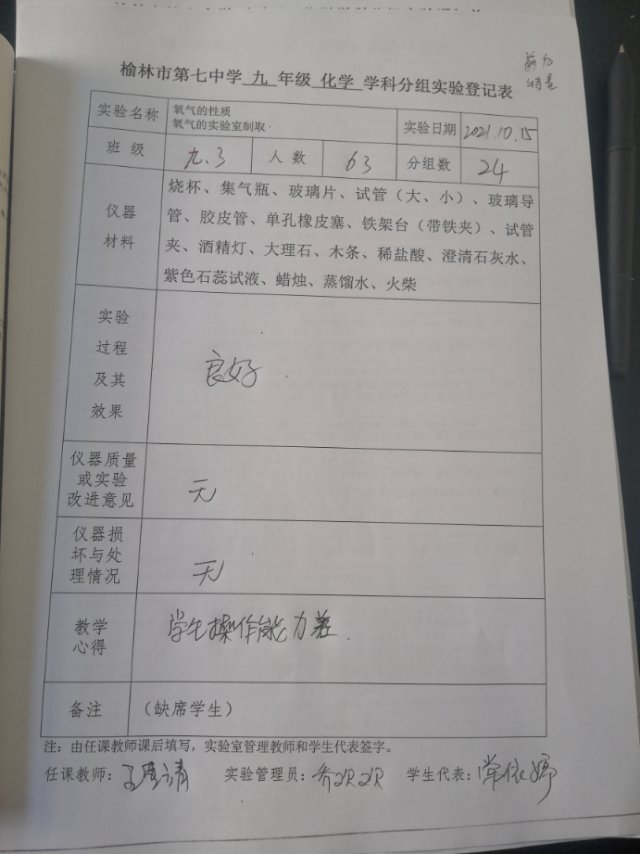 榆林市第七中学 九 年级 化学 学科分组实验登记表
实验名称 氧气的性质
氧气的实验室制取.
实验日期 2021.10.15
班 级 九.3 人 数 63 分组数 24
仪器
材料
烧杯、集气瓶、玻璃片、试管（大、小）、玻璃导
管、胶皮管、单孔橡皮塞、铁架台（带铁夹）、试管
夹、酒精灯、大理石、木条、稀盐酸、澄清石灰水、
紫色石蕊试液、蜡烛、蒸馏水、火柴
实验
过程
及其
效果
良好.
仪器质量
或实验
改进意见
无
仪器损
坏与处
理情况
无
教学
心得
学生操作能力差.
备注 （缺席学生）
注：由任课教师课后填写，实验室管理教师和学生代表签字。
任课教师： 实验管理员：乔欢欢 学生代表：常依婷